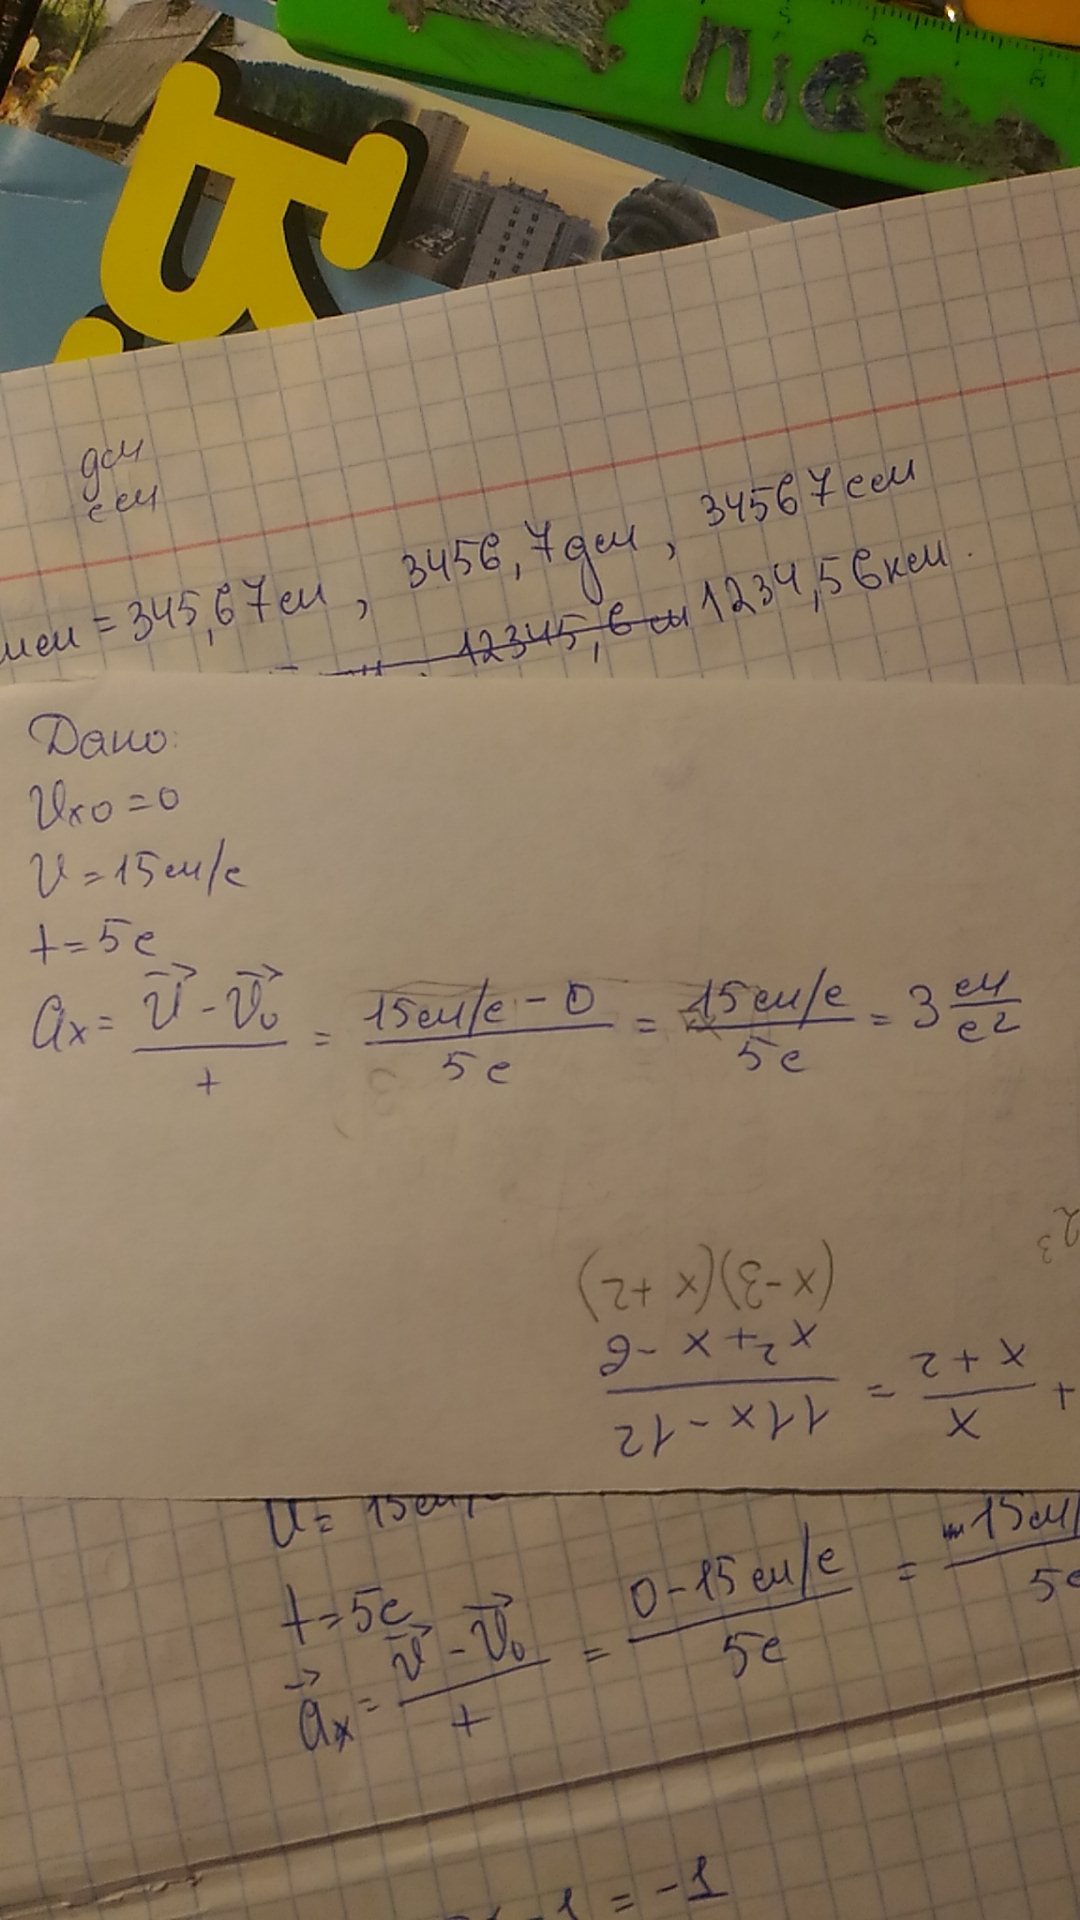 nice
дм
см
мм = 345,67 м, 3456,7 дм, 34567 см
12345,6 м 1234,56 км.
Дано:
Vx0 = 0
V = 15 м/с
t = 5 с
ax = (V⃗ - V⃗0)/t = (15 м/с - 0)/(5 с) = (15 м/с)/(5 с) = 3 м/с²
+ x/(x + 2) = (11x - 12)/(x² + x - 6)
(x - 3)(x + 2)
V = 15 м/
t = 5 с
a⃗x = (V⃗ - V⃗0)/t = (0 - 15 м/с)/(5 с) = (-15 м/)/(5 с)
1 = -1